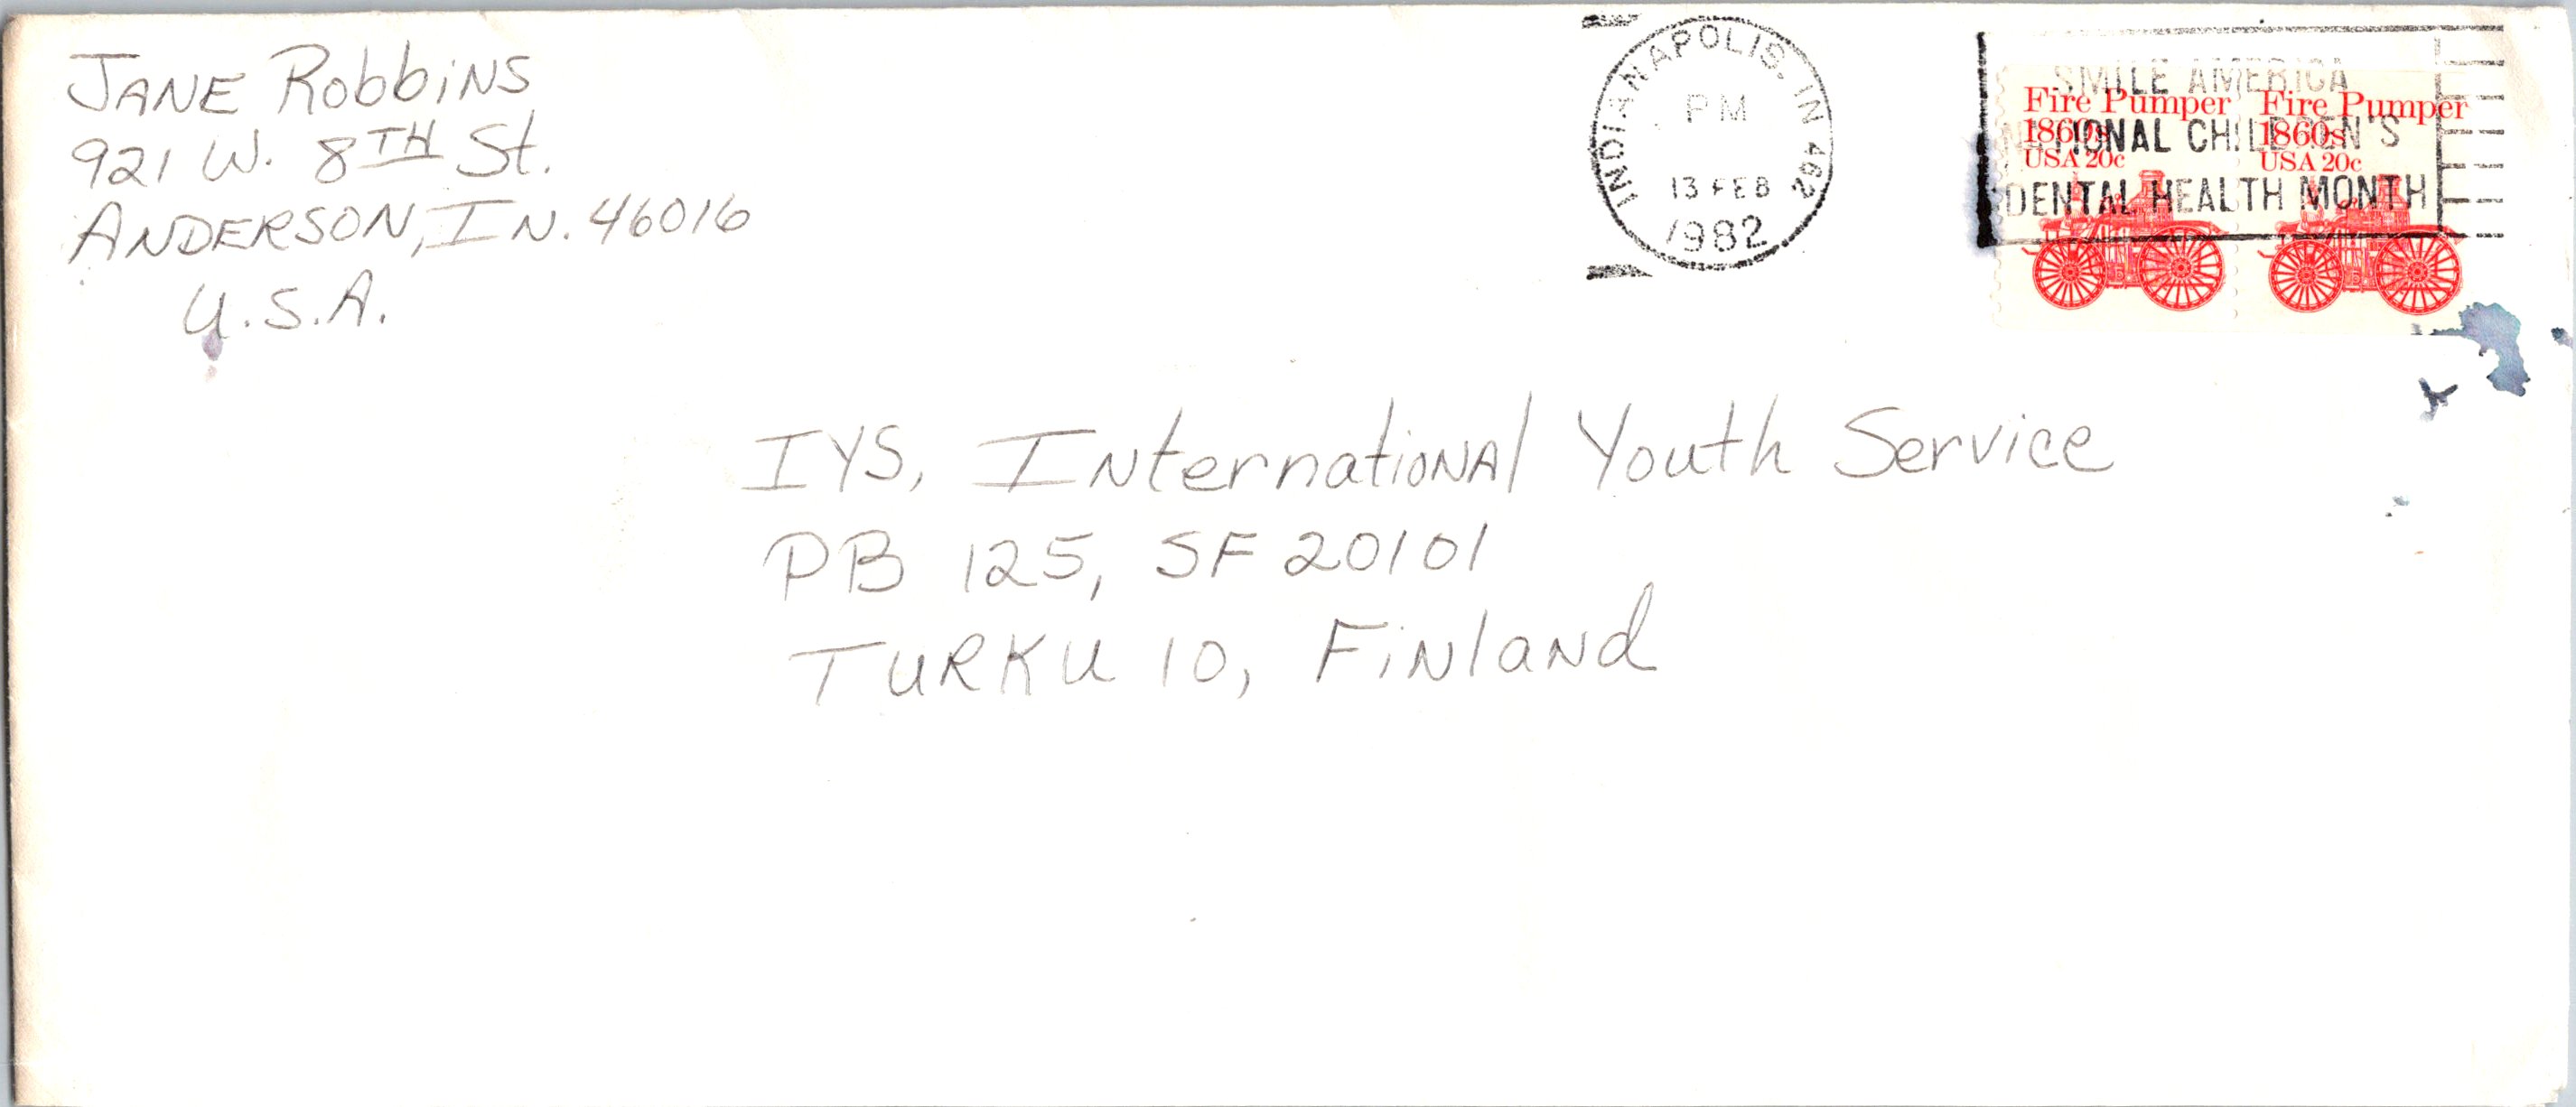 JANE RobbiNS
921 W. 8TH St.
ANDERSON, IN. 46016
U.S.A.
INDIANAPOLIS, IN 462
PM
13 FEB
1982
SMILE AMERICA
NATIONAL CHILDREN'S
DENTAL HEALTH MONTH
Fire Pumper
1860s
USA 20c
Fire Pumper
1860s
USA 20c
IYS, INternatioNAl Youth Service
PB 125, SF 20101
TURKU 10, FiNlaNd